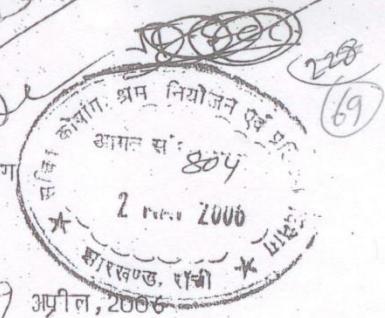 228
69
सचिव कोषांग, श्रम नियोजन एवं
आगत सं०
804
ग
2 2006
झारखण्ड, राँची
अप्रील, 2006